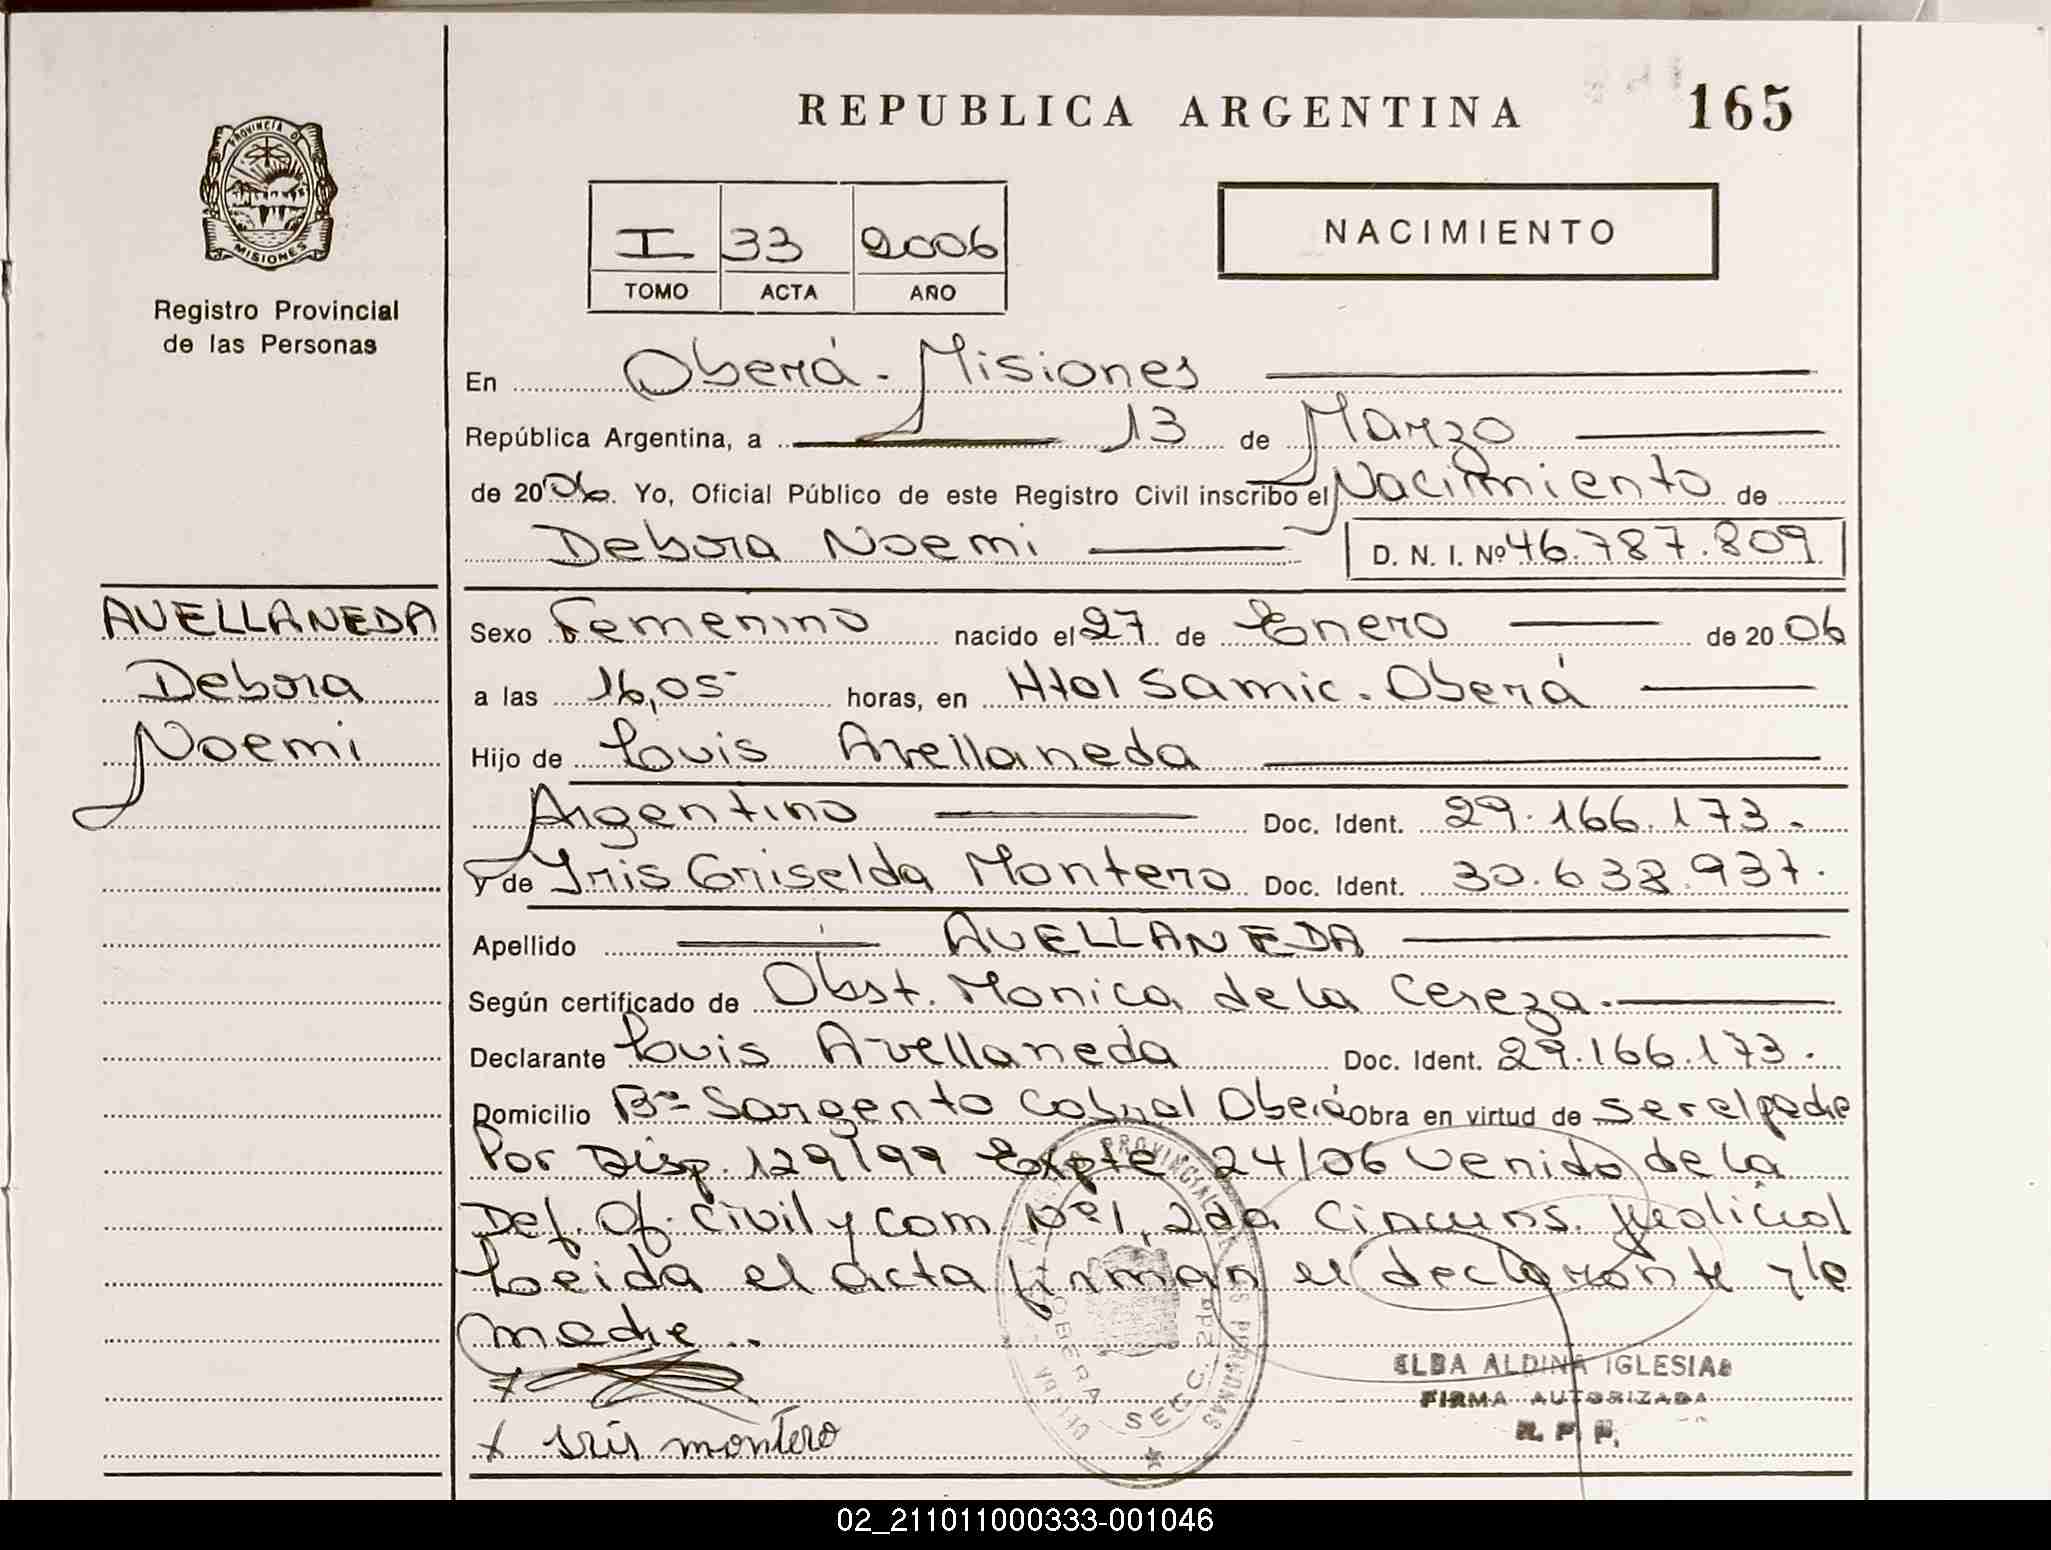 REPUBLICA ARGENTINA
165
PROVINCIA DE
MISIONES
Registro Provincial
de las Personas
I 33 2006
TOMO ACTA AÑO
NACIMIENTO
En Oberá - Misiones
República Argentina, a 13 de Marzo
de 2006. Yo, Oficial Público de este Registro Civil inscribo el Nacimiento de
Debora Noemi D. N. I. Nº 46.787.809
AVELLANEDA
Debora
Noemi
Sexo Femenino nacido el 27 de Enero de 2006
a las 16,05 horas, en Htal Samic. Oberá
Hijo de Louis Avellaneda
Argentino Doc. Ident. 29.166.173.
y de Iris Griselda Montero Doc. Ident. 30.638.937.
Apellido AVELLANEDA
Según certificado de Obst. Monica de la Cereza.
Declarante Louis Avellaneda Doc. Ident. 29.166.173.
Domicilio Bº Sargento Cabral Oberá Obra en virtud de ser el padre
Por Disp. 129/99 Expte 24/06 venido de la
Def. Of. Civil y Com. Nº 1, 2da Circuns. Judicial
Leida el acta firman el declarante y la
madre..
x Iris montero
OBERA SECC.
ELBA ALDINA IGLESIAS
FIRMA AUTORIZADA
R. P. P.
02_211011000333-001046